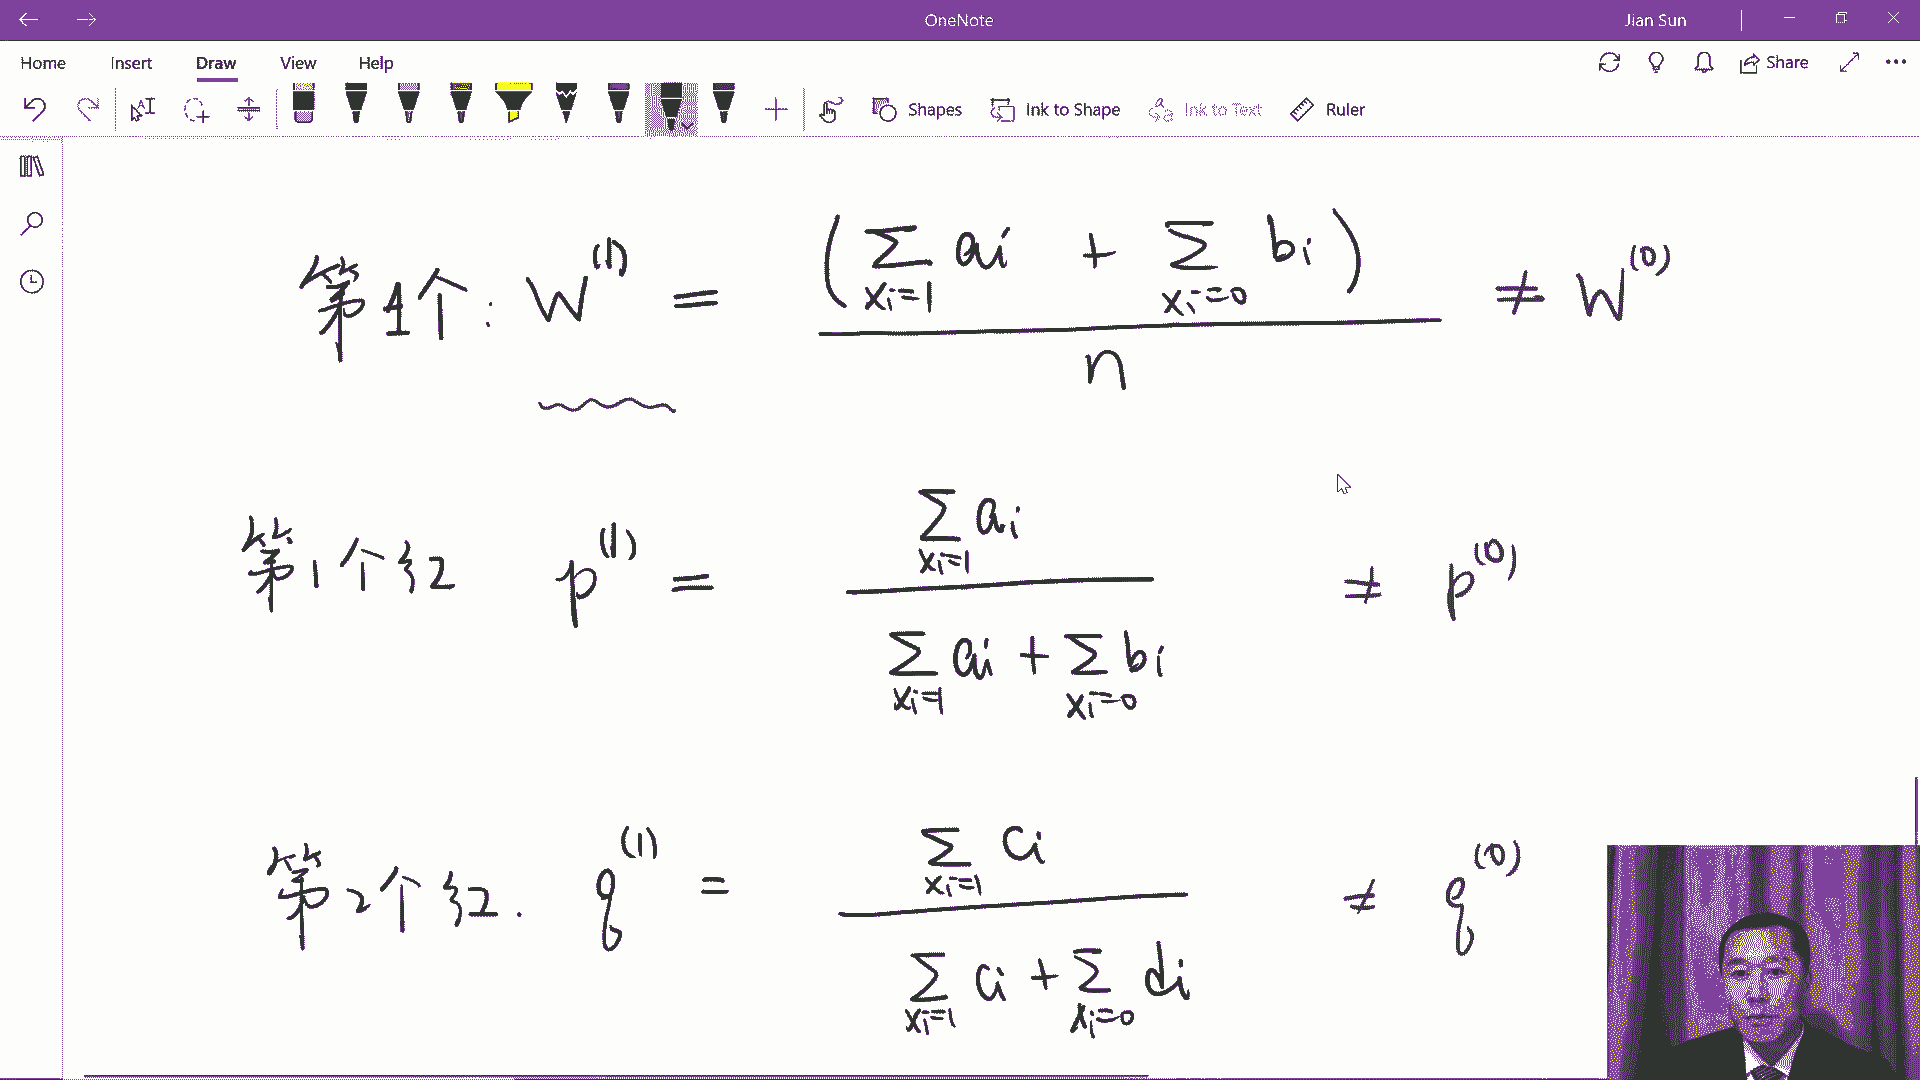 OneNote
Jian Sun
Home Insert Draw View Help
Share
Shapes Ink to Shape Ink to Text Ruler
第1个: W^(1) = (∑_{xi=1} ai + ∑_{xi=0} bi) / n ≠ W^(0)
第1个红 p^(1) = ∑_{xi=1} ai / ∑_{xi=1} ai + ∑_{xi=0} bi ≠ p^(0)
第2个红. q^(1) = ∑_{xi=1} ci / ∑_{xi=1} ci + ∑_{xi=0} di ≠ q^(0)